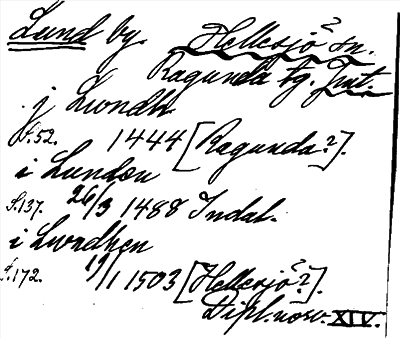 Lund by. Hellesjö? sn.
Ragunda tg. Jmt.
j Lwndh
S.52. 1444 [Ragunda?].
i Lundæu
S.137. 26/3 1488 Indal.
i Lwndhen
S.172. 19/1 1503 [Hellesjö?].
Dipl. norv. XIV.